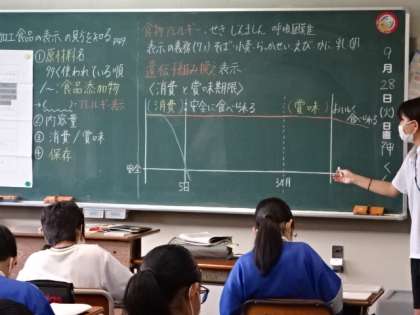 加工食品の表示の見方を知る
①原材料名
多く使われている順
/〜:食品添加物
アレルギー表示
②内容量
③消費/賞味
④保存
食物アレルギー・せき じんましん 呼吸困難
表示の義務(7つ)そば・小麦・らっかせい・えび・かに・乳・卵
遺伝子組み換え表示
〈消費と賞味期限〉
(消費)安全に食べられる
(賞味)おいしく
食べられる
安全
5日
3ヶ月
9月28日(火)日直